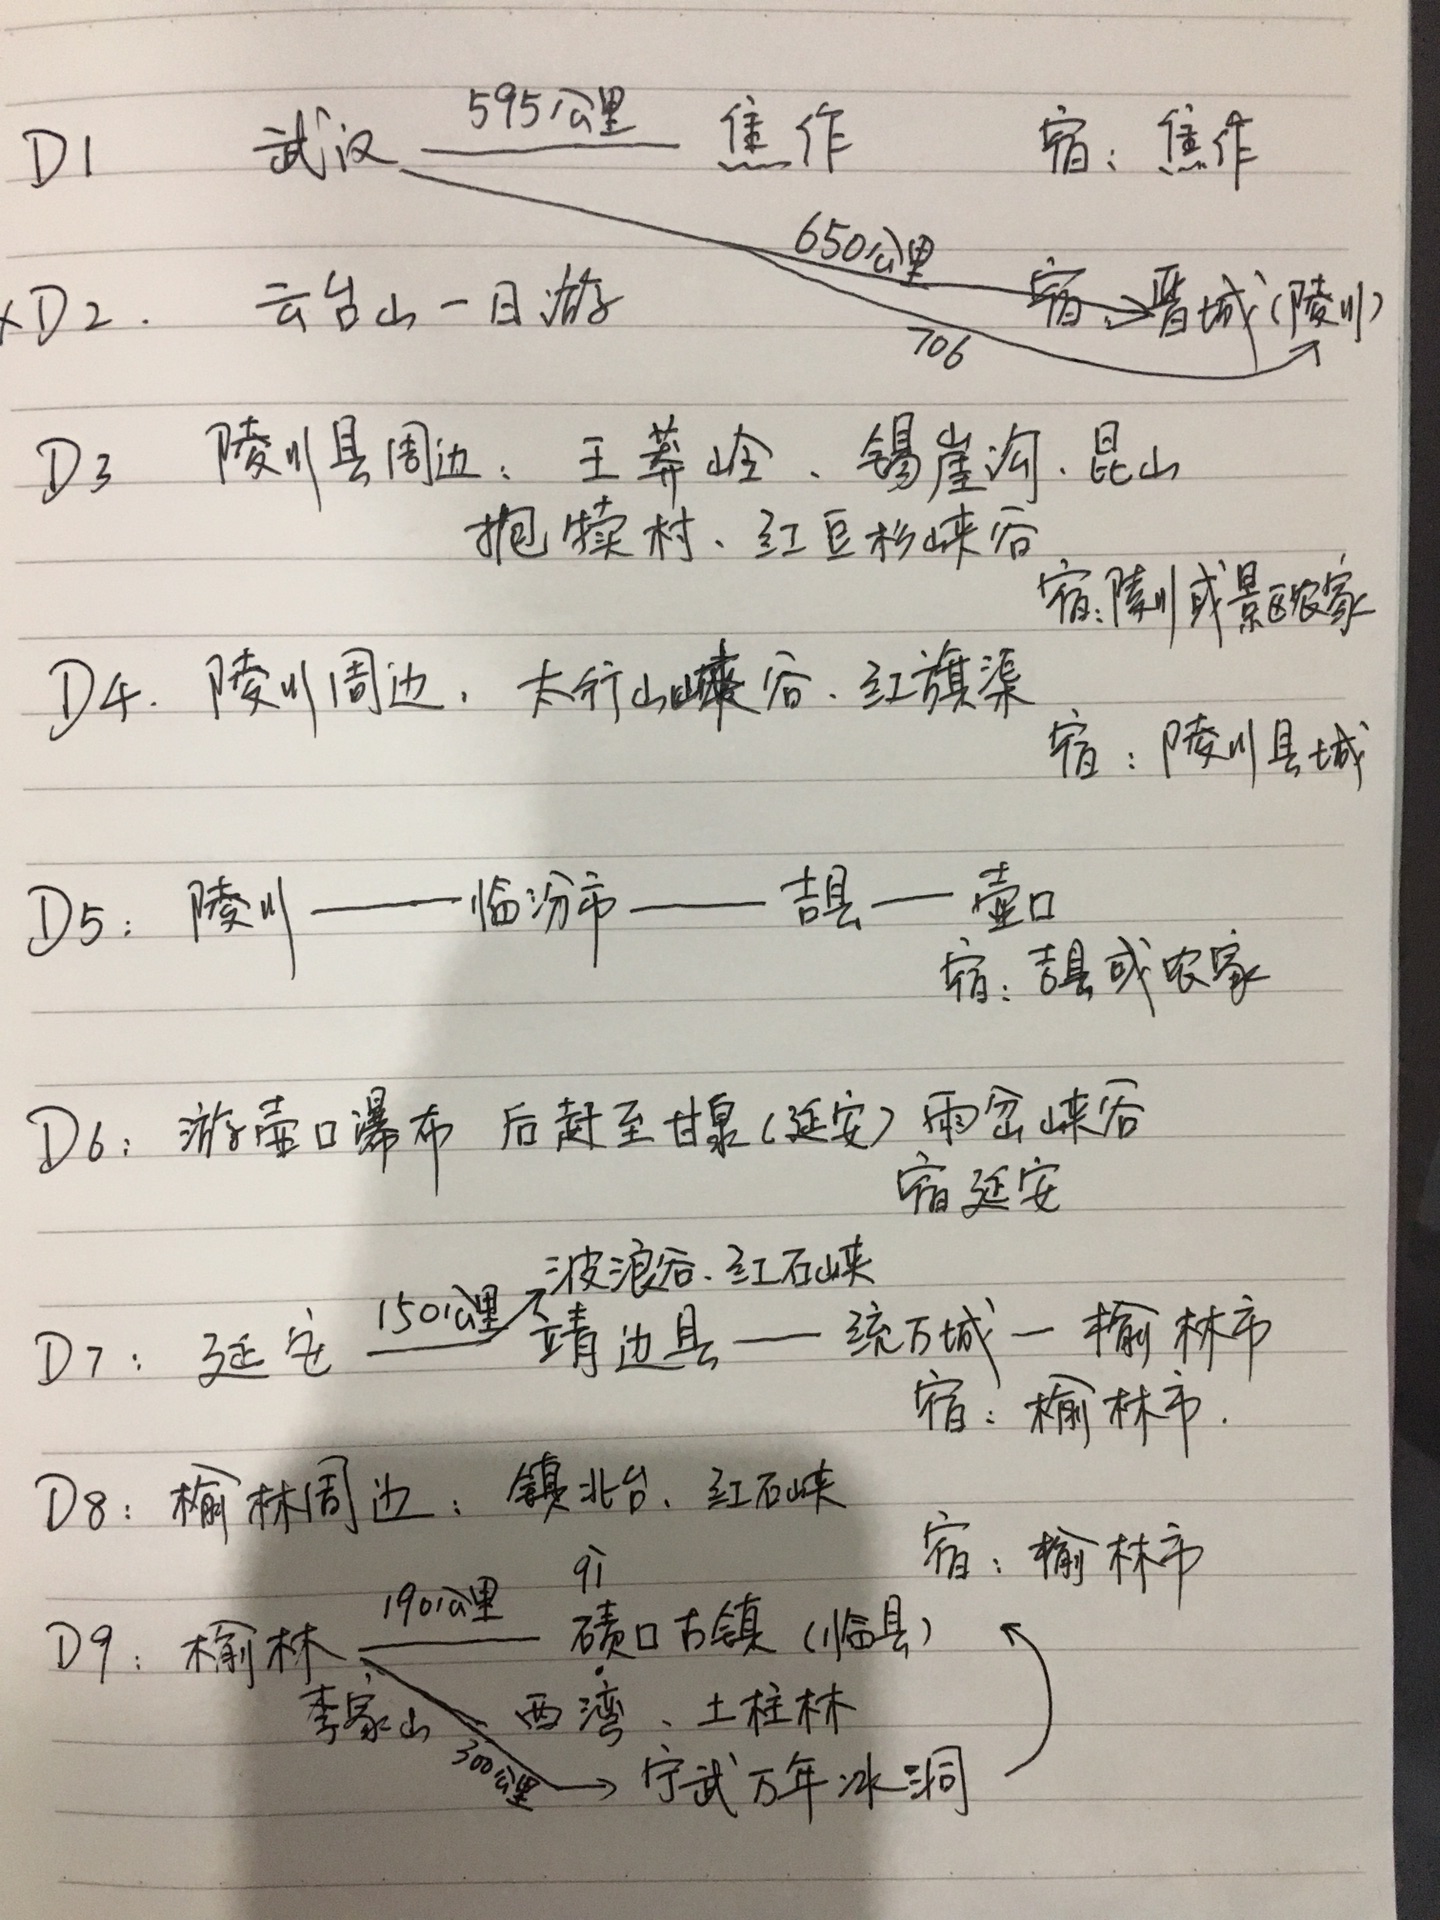 D1 武汉 595公里 焦作 宿：焦作
650公里
xD2. 云台山一日游 宿：晋城(陵川)
706
D3 陵川县周边：王莽岭、锡崖沟、昆山
抱犊村、红豆杉峡谷
宿：陵川或景区农家
D4. 陵川周边，太行山峡谷、红旗渠
宿：陵川县城
D5：陵川——临汾市——吉县—壶口
宿：吉县或农家
D6：游壶口瀑布 后赶至甘泉(延安)雨岔峡谷
宿延安
波浪谷、红石峡
D7：延安 150公里 靖边县——统万城—榆林市
宿：榆林市.
D8：榆林周边：镇北台、红石峡
宿：榆林市
D9：榆林 190公里 碛口古镇(临县)
李家山 西湾、土柱林
300公里 宁武万年冰洞